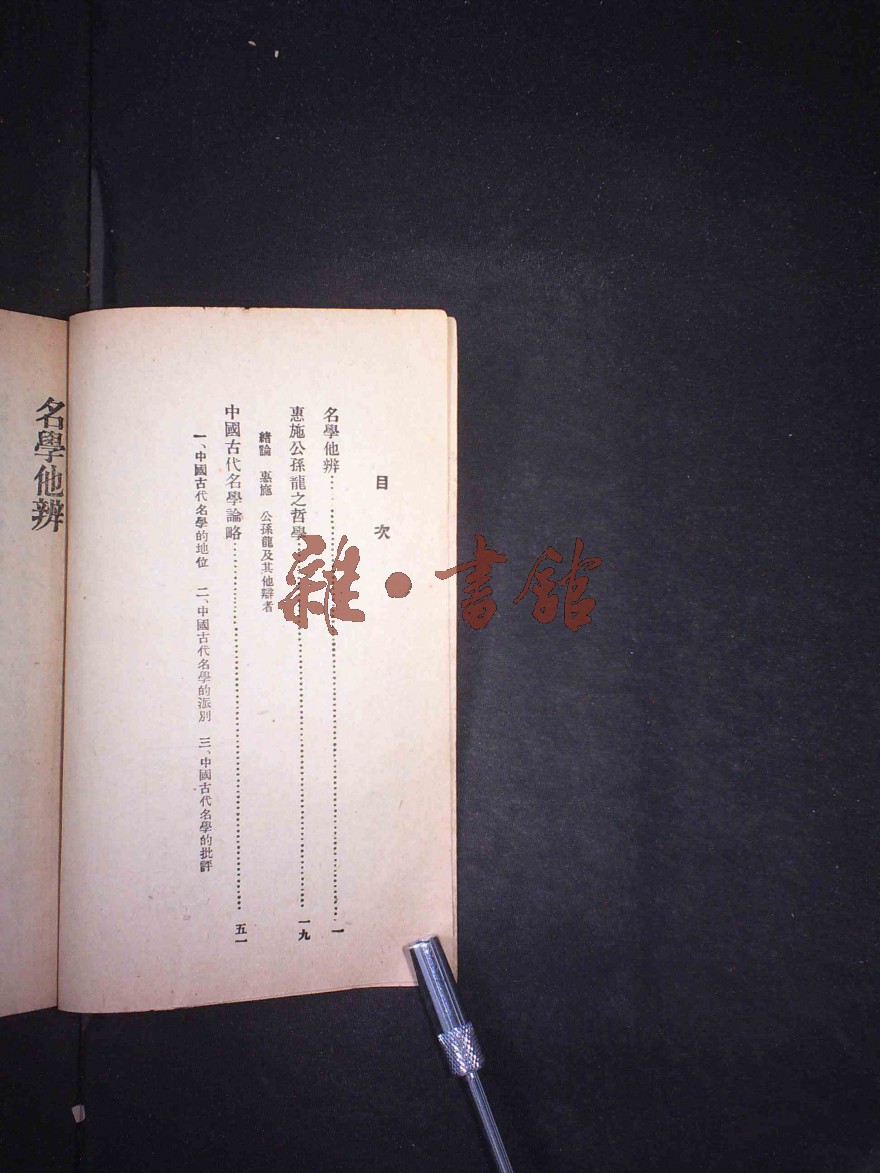 目次
名學他辨……一
惠施公孫龍之哲學……一九
緒論 惠施 公孫龍及其他辯者
中國古代名學論略……五一
一、中國古代名學的地位 二、中國古代名學的派別 三、中國古代名學的批評
名學他辨
雜·書館